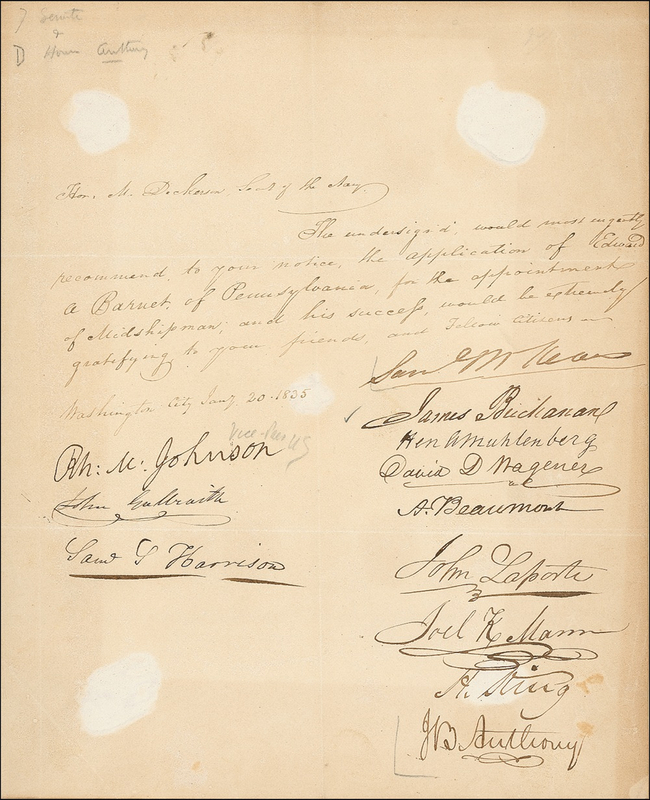 Senate
&
House Anthony
Hon. M. Dickerson Sect of the Navy
The undersign'd, would most urgently
recommend, to your notice, the application of Edward
A Barnet, of Pennsylvania, for the appointment
of Midshipman; and his success, would be extremely
gratifying to your friends, and Fellow Citizens
Washington City Jany. 20. 1835
Saml McKean
James Buchanan
Hen A Muhlenberg
David D Wagener
A. Beaumont
Vice-Pres US
Rh: M: Johnson
John Galbraith
Saml S Harrison
John Laporte
Joel K Mann
H. King
JB Anthony